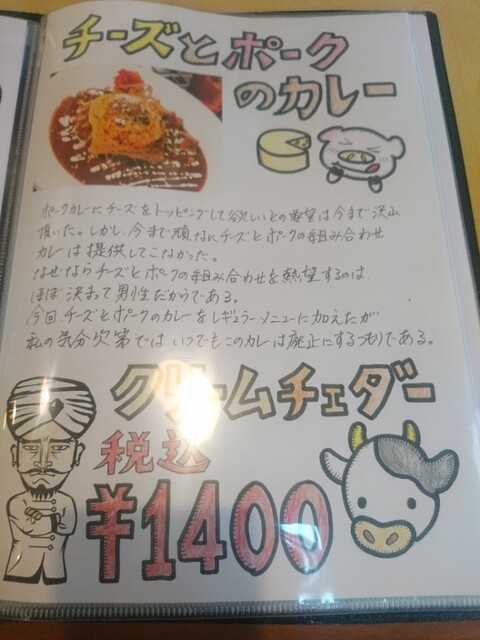 チーズとポーク
のカレー
ポークカレーにチーズをトッピングして欲しいとの要望は今まで沢山
頂いた。しかし、今まで頑なにチーズとポークの組み合わせ
カレーは提供してこなかった。
なぜならチーズとポークの組み合わせを熱望するのは、
ほぼ決まって男性だからである。
今回チーズとポークのカレーをレギュラーメニューに加えたが
私の気分次第ではいつでもこのカレーは廃止にするつもりである。
クリームチェダー
税込
¥1400